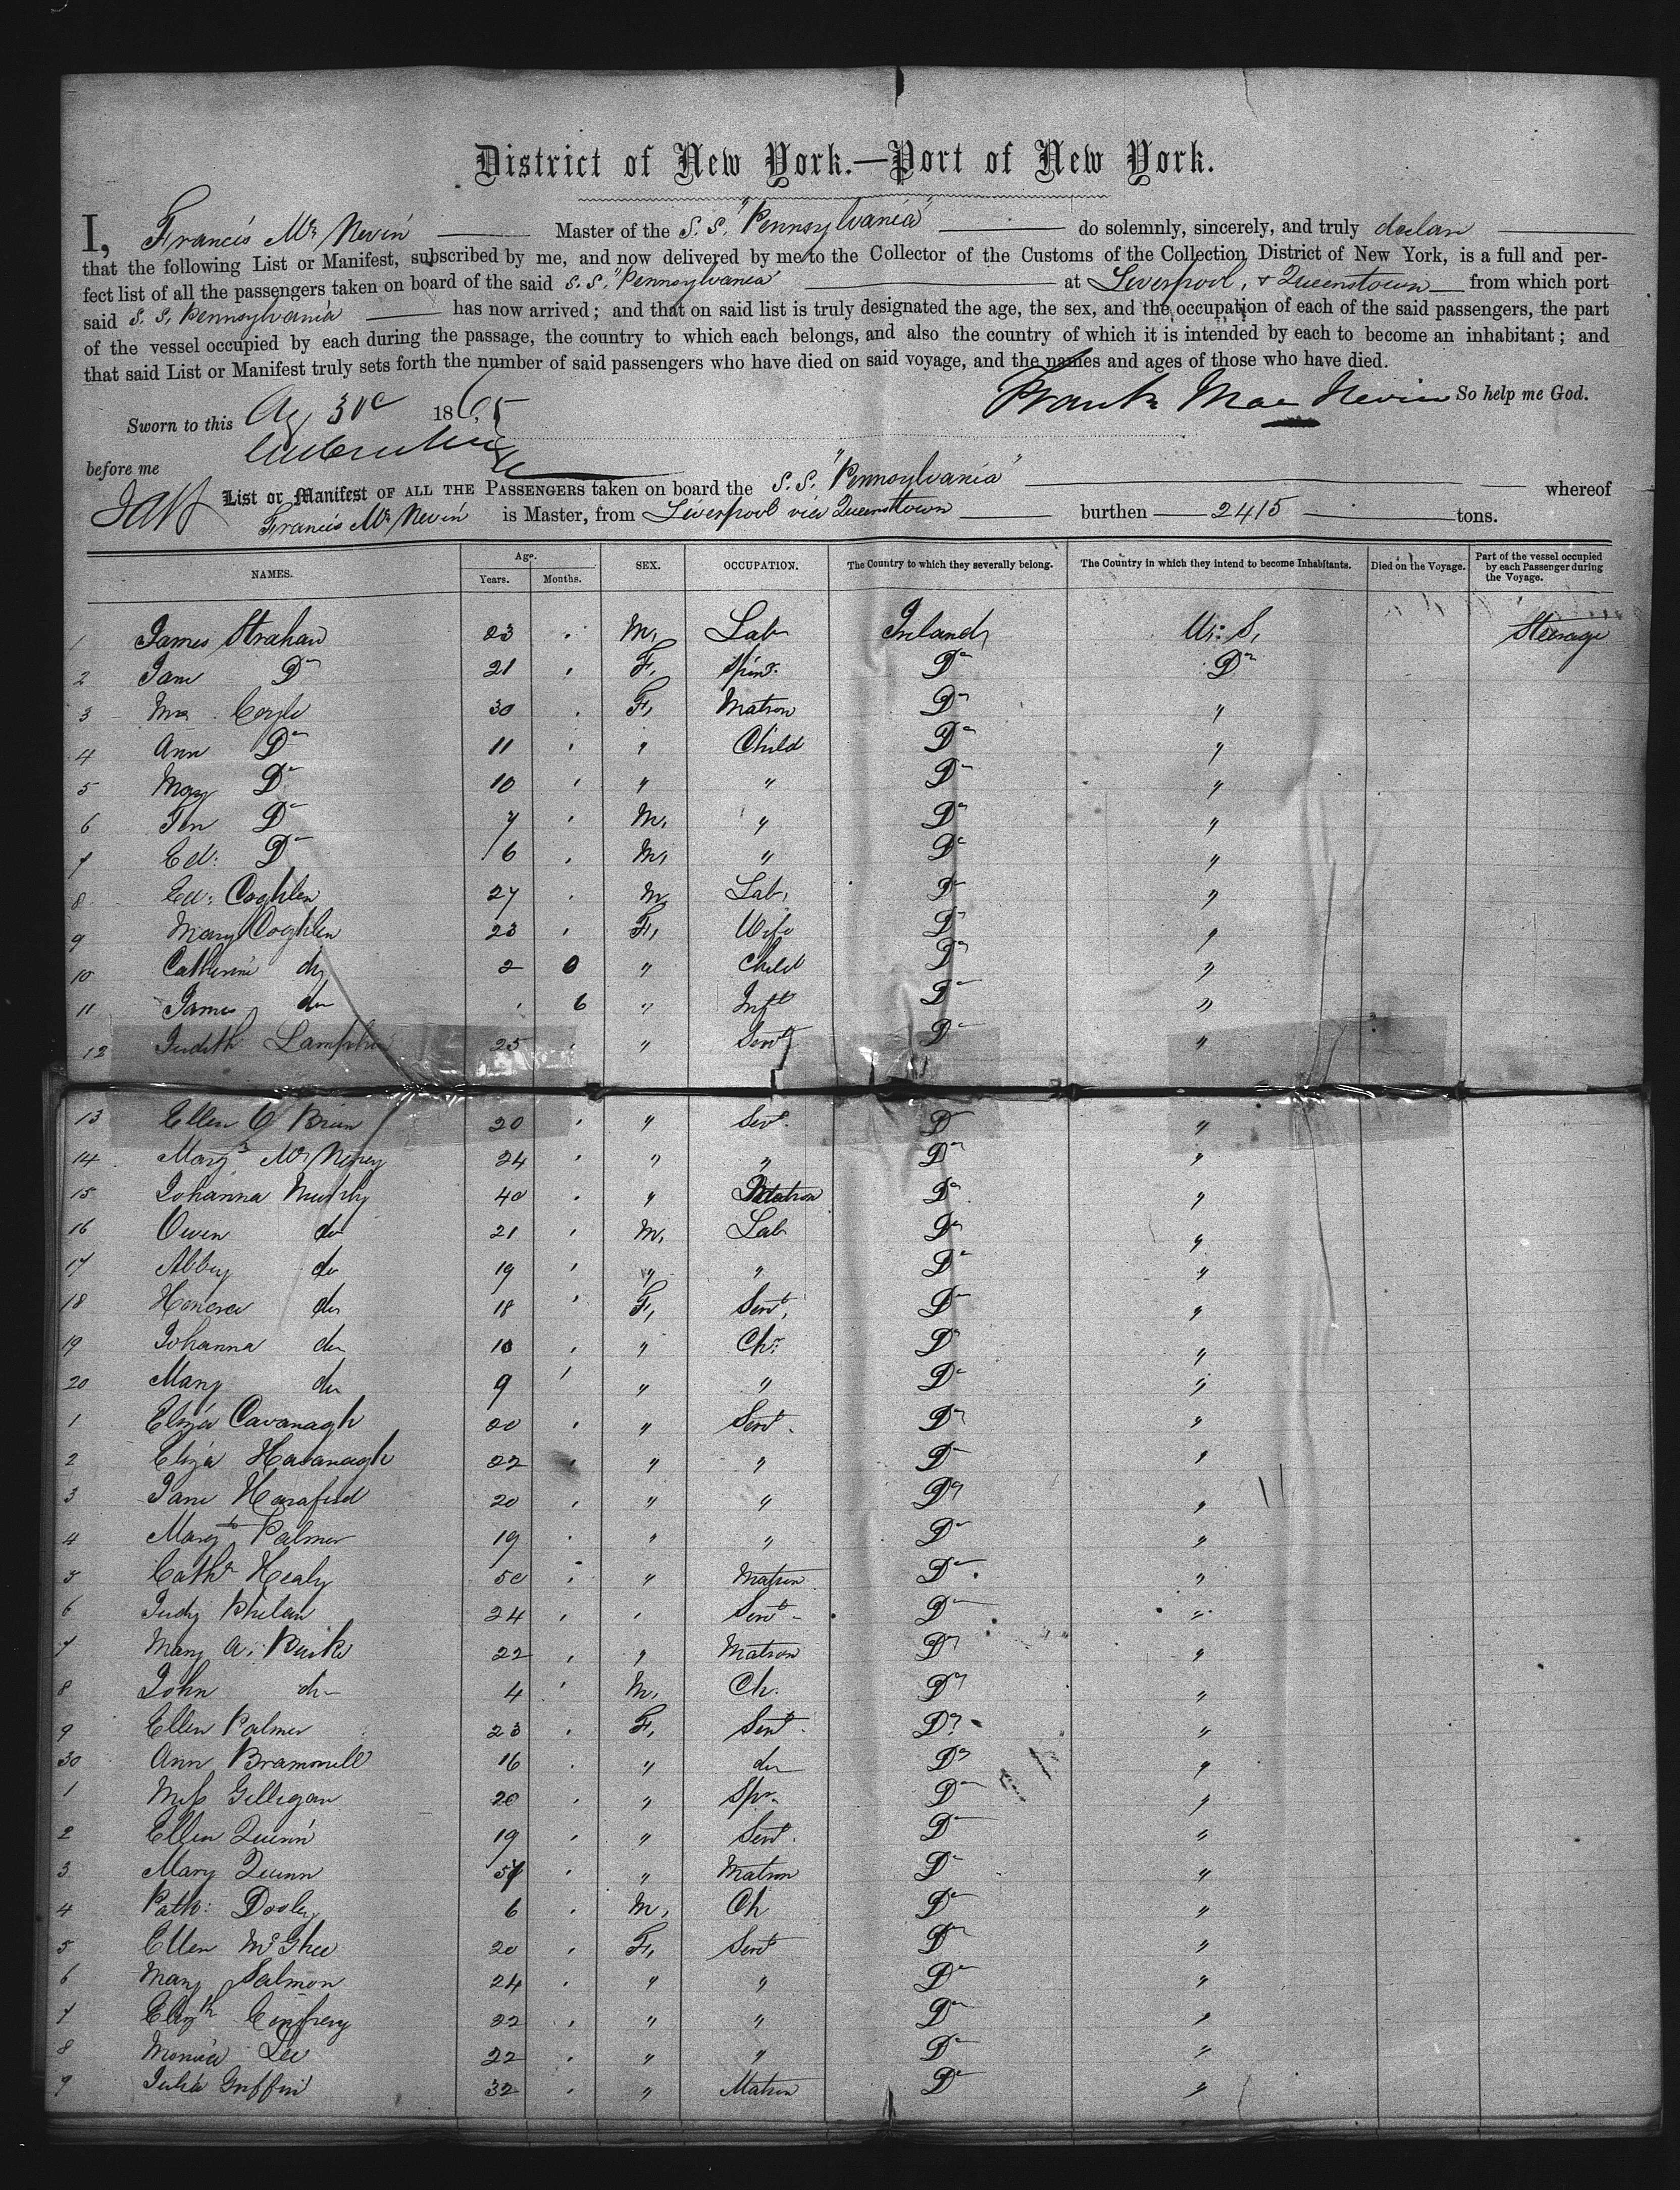 District of New York.—Port of New York.
I, Francis Mc Nevin Master of the S. S. "Pennsylvania" do solemnly, sincerely, and truly declare
that the following List or Manifest, subscribed by me, and now delivered by me to the Collector of the Customs of the Collection District of New York, is a full and per-
fect list of all the passengers taken on board of the said S. S. "Pennsylvania" at Liverpool, & Queenstown from which port
said S. S. Pennsylvania has now arrived; and that on said list is truly designated the age, the sex, and the occupation of each of the said passengers, the part
of the vessel occupied by each during the passage, the country to which each belongs, and also the country of which it is intended by each to become an inhabitant; and
that said List or Manifest truly sets forth the number of said passengers who have died on said voyage, and the names and ages of those who have died.
Frank Mac Nevin So help me God.
Sworn to this Ag 30 1865
before me
List or Manifest OF ALL THE PASSENGERS taken on board the S. S. "Pennsylvania" whereof
Francis Mc Nevin is Master, from Liverpool via Queenstown burthen 2415 tons.
NAMES. Age. Years. Months. SEX. OCCUPATION. The Country to which they severally belong. The Country in which they intend to become Inhabitants. Died on the Voyage. Part of the vessel occupied by each Passenger during the Voyage.
1 James Strahan 23 M, Lab Ireland, U. S, Steerage
2 Jane Do 21 F, Spinr. Do Do
3 Mrs Coyle 30 F, Matron Do "
4 Ann Do 11 " Child Do "
5 Mary Do 10 " " Do "
6 Do 7 M, " Do "
7 Ed: Do 6 M, " Do "
8 Ed: Coghlen 27 M, Lab, Do "
9 Mary Coghlen 23 F, Wife Do "
10 Catherine do 2 0 " Child Do "
11 James do 6 " Inft Do "
12 Judith 25 " Servt Do "
13 Ellen O Brien 20 " Servt. Do "
14 Margt Mc 24 " " Do "
15 Johanna Murphy 40 " Matron Do "
16 Owen do 21 M, Lab Do "
17 Abby do 19 " " Do "
18 Honora do 18 F, Servt, Do "
19 Johanna do 10 " Ch: Do "
20 Mary do 9 " " Do "
1 Eliza Cavanagh 20 " Servt. Do "
2 Eliza Kavanagh 22 " " Do "
3 Jane 20 " " Do "
4 Margt Palmer 19 " " Do "
5 Cathr Healy 50 " Matron Do "
6 Judy Phelan 24 Servt Do "
7 Mary A. Burke 22 " Matron Do "
8 John do 4 M, Ch. Do "
9 Ellen Palmer 23 F, Servt. Do "
30 Ann Brammell 16 " do Do "
1 Miss Gilligan 20 " Spr. Do "
2 Ellen Quinn 19 " Servt. Do "
3 Mary Quinn " Matron Do "
4 Patk: Dooley 6 M, Ch Do "
5 Ellen McGhee 20 F, Servt Do "
6 Mary Salmon 24 " " Do "
7 Elizth 22 " " Do "
8 Lee 22 " " Do "
9 Julia Griffin 32 " Matron Do "